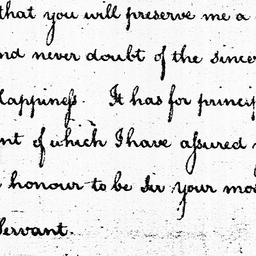 that you will preserve me a
nd never doubt of the since
Happineſs. It has for princip
nt of which I have aſsured
honour to be Sir your mos
Servant.